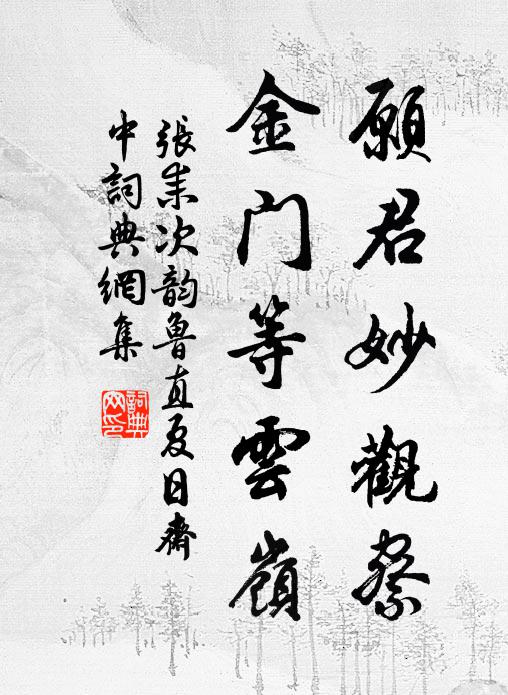 願君妙觀察
金门等雲嶺
張耒次韵魯直夏日齋
中詞典網集
詞典
网印